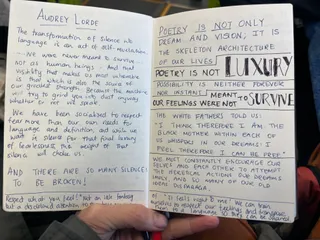 AUDREY LORDE
The transformation of silence into
language is an act of self-revelation
We were never meant to survive
not as human beings. And that
visibility that makes us most vulnerable
is that which is also the source of
our greatest strength. Because the machine
will try to grind you into dust anyway
whether or not we speak
We have been socialized to respect
fear more than our own need for
language and definition, and while we
wait in silence for that final luxury
of fearlessness the weight of that
silence will choke us.
AND THERE ARE SO MANY SILENCES
TO BE BROKEN!
POETRY IS NOT ONLY
DREAM AND VISION; IT IS
THE SKELETON ARCHITECTURE
OF OUR LIVES
POETRY IS NOT LUXURY
POSSIBILITY IS NEITHER FOREVER
NOR INSTANT
OUR FEELINGS WERE NOT MEANT TO SURVIVE
THE WHITE FATHERS TOLD US:
I THINK THEREFORE I AM. THE
BLACK MOTHER WITHIN EACH OF
US WHISPERS IN OUR DREAMS: I
FEEL THEREFORE I CAN BE FREE.
WE MUST CONSTANTLY ENCOURAGE OUR
SELVES AND EACH OTHER TO ATTEMPT
THE HERETICAL ACTIONS OUR DREAMS
IMPLY, AND SO MANY OF OUR OLD
IDEAS DISPARAGE.
"It feels right to me" We can train
ourselves to respect our feelings and transpose
them in a language so they can be shared